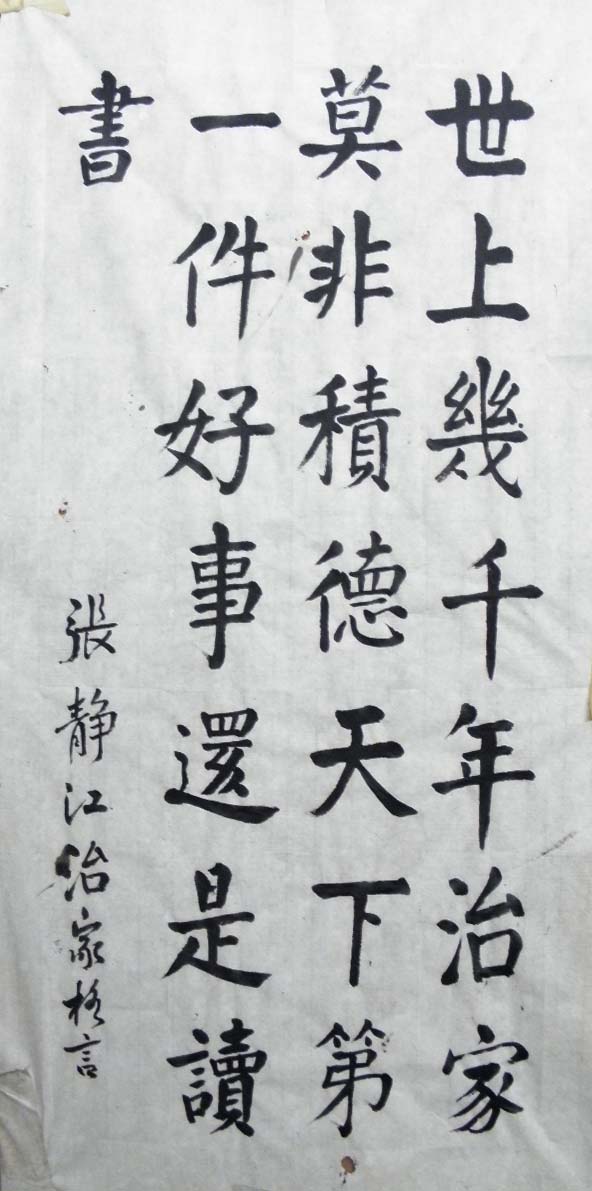 世上幾千年治家
莫非積德天下第
一件好事還是讀
書
張靜江治家格言